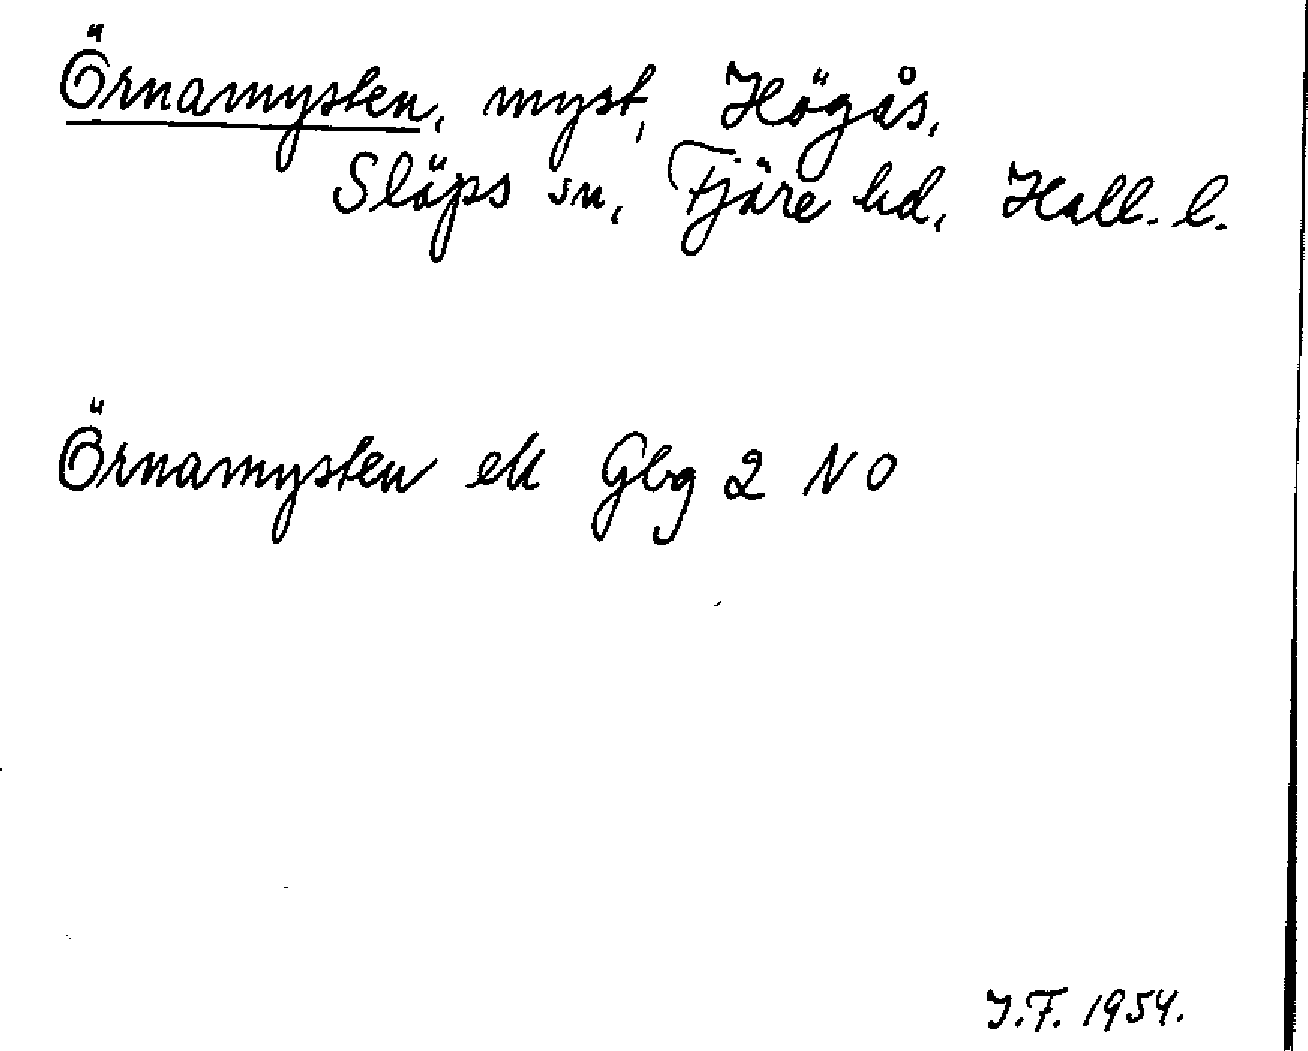 Örnamysten, myst, Högås,
Släps sn, Fjäre hd, Hall. l.
Örnamysten ek Gbg 2 NO
I.F. 1954.